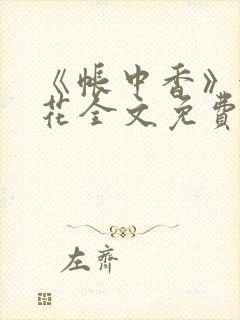 《帐中香》
花全文免費
左齊